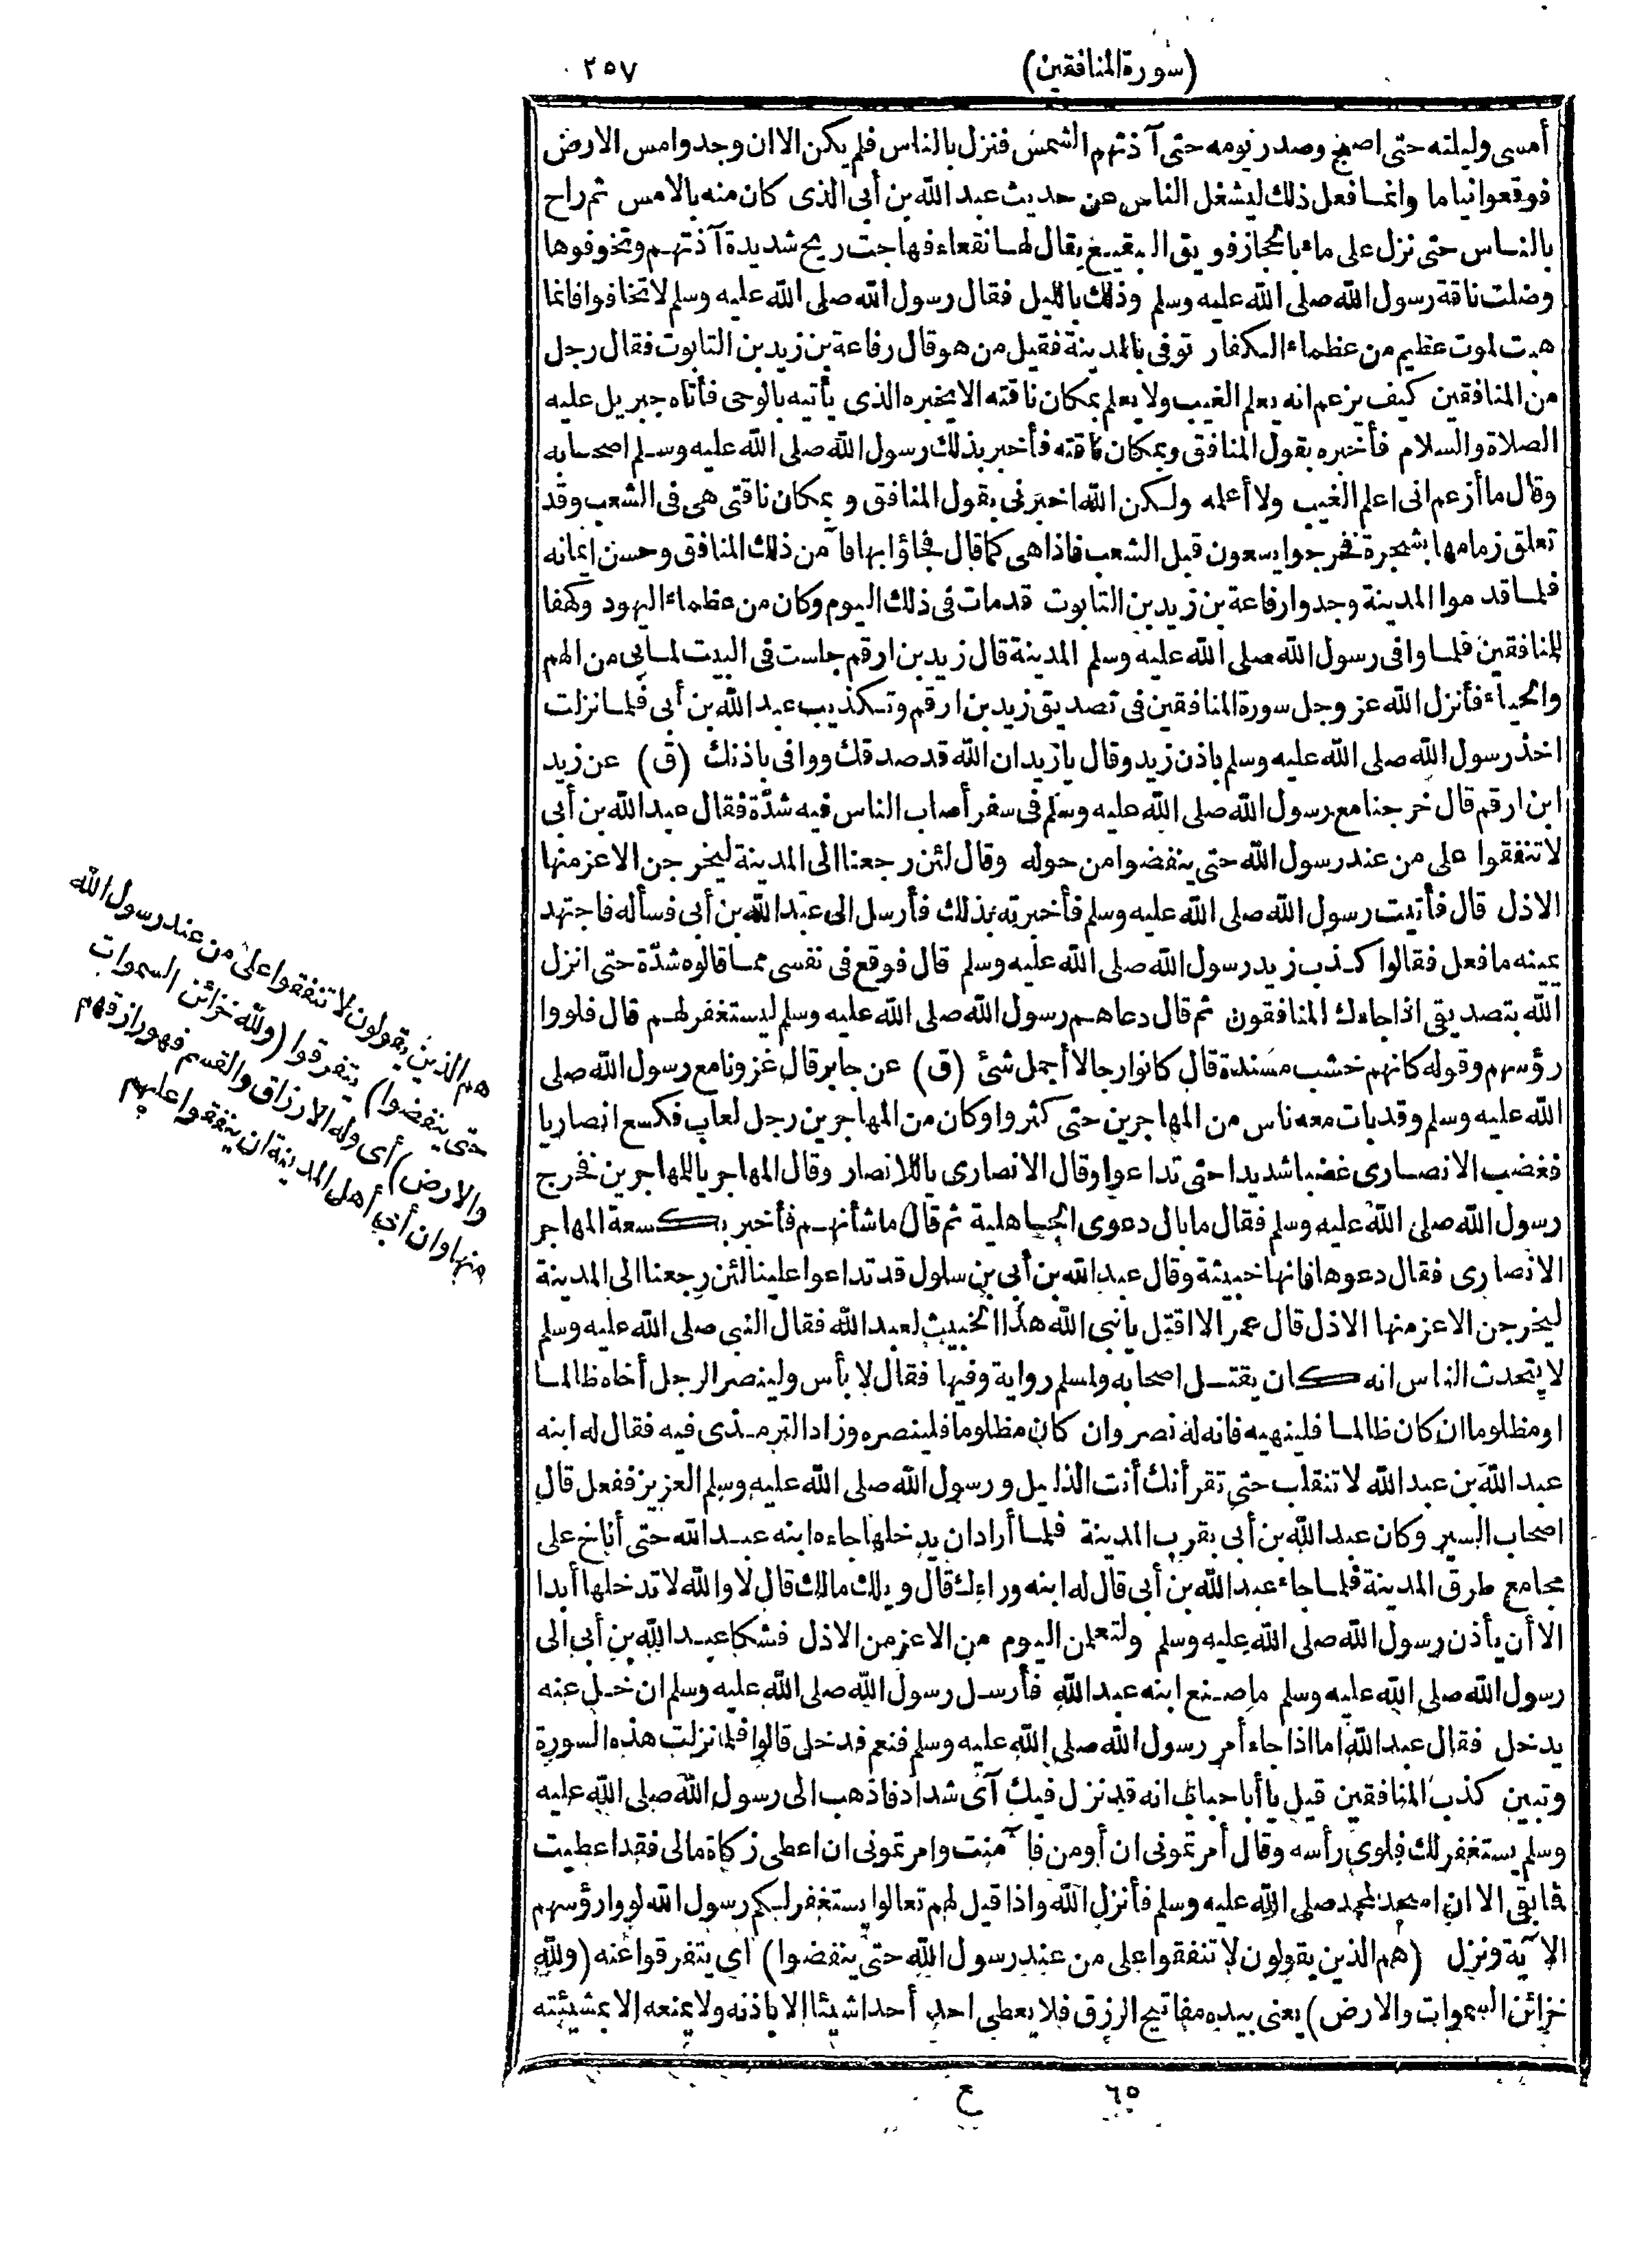 (سورة المنافقين)
٢٥٧
أمسى وليلته حتى اصبح وصدر يومه حتى آذتهم الشمس فنزل بالناس فلم يكن الا ان وجدوا مس الارض
فوقعوا نياما وانما فعل ذلك ليشغل الناس عن حديث عبد الله بن أبى الذى كان منه بالامس ثم راح
بالناس حتى نزل على ماء بالحجاز فويق البقيع يقال لها نقعاء فهاجت ريح شديدة آذتهم وتخوفوها
وضلت ناقة رسول الله صلى الله عليه وسلم وذلك بالليل فقال رسول الله صلى الله عليه وسلم لا تخافوا فانما
هبت لموت عظيم من عظماء الكفار توفى بالمدينة فقيل من هو قال رفاعة بن زيد بن التابوت فقال رجل
من المنافقين كيف يزعم انه يعلم الغيب ولا يعلم بمكان ناقته الا يخبره الذى يأتيه بالوحى فأتاه جبريل عليه
الصلاة والسلام فأخبره بقول المنافق وبمكان ناقته فأخبر بذلك رسول الله صلى الله عليه وسلم اصحابه
وقال ما أزعم انى اعلم الغيب ولا أعلمه ولكن الله اخبرنى بقول المنافق و بمكان ناقتى هى فى الشعب وقد
تعلق زمامها بشجرة فخرجوا يسعون قبل الشعب فاذا هى كما قال فجاؤا بها فآمن ذلك المنافق وحسن ايمانه
فلما قدموا المدينة وجدوا رفاعة بن زيد بن التابوت قد مات فى ذلك اليوم وكان من عظماء اليهود وكهفا
للمنافقين فلما وافى رسول الله صلى الله عليه وسلم المدينة قال زيد بن ارقم جلست فى البيت لما بى من الهم
والحياء فأنزل الله عز وجل سورة المنافقين فى تصديق زيد بن ارقم وتكذيب عبد الله بن أبى فلما نزلت
اخذ رسول الله صلى الله عليه وسلم باذن زيد وقال يا زيد ان الله قد صدقك ووافى باذنك (ق) عن زيد
ابن ارقم قال خرجنا مع رسول الله صلى الله عليه وسلم فى سفر أصاب الناس فيه شدّة فقال عبد الله بن أبى
لا تنفقوا على من عند رسول الله حتى ينفضوا من حوله وقال لئن رجعنا الى المدينة ليخرجن الاعز منها
الاذل قال فأتيت رسول الله صلى الله عليه وسلم فأخبرته بذلك فأرسل الى عبد الله بن أبى فسأله فاجتهد
يمينه ما فعل فقالوا كذب زيد رسول الله صلى الله عليه وسلم قال فوقع فى نفسى مما قالوه شدّة حتى انزل
الله بتصديقى اذا جاءك المنافقون ثم قال دعاهم رسول الله صلى الله عليه وسلم ليستغفر لهم قال فلووا
رؤسهم وقوله كانهم خشب مسندة قال كانوا رجالا أجمل شئ (ق) عن جابر قال غزونا مع رسول الله صلى
الله عليه وسلم وقد بات معه ناس من المهاجرين حتى كثروا وكان من المهاجرين رجل لعاب فكسع انصاريا
فغضب الانصارى غضبا شديدا حتى تداعوا وقال الانصارى ياللانصار وقال المهاجر ياللمهاجرين فخرج
رسول الله صلى الله عليه وسلم فقال ما بال دعوى الجاهلية ثم قال ما شأنهم فأخبر بكسعة المهاجر
الانصارى فقال دعوها فانها خبيثة وقال عبد الله بن أبى بن سلول قد تداعوا علينا لئن رجعنا الى المدينة
ليخرجن الاعز منها الاذل قال عمر الا اقتل يا نبى الله هذا الخبيث لعبد الله فقال النبى صلى الله عليه وسلم
لا يتحدث الناس انه كان يقتل اصحابه ولمسلم رواية وفيها فقال لا بأس ولينصر الرجل أخاه ظالما
او مظلوما ان كان ظالما فلينهيه فانه له نصر وان كان مظلوما فلينصره وزاد الترمذى فيه فقال له ابنه
عبد الله بن عبد الله لا تنقلب حتى تقر أنك أنت الذليل و رسول الله صلى الله عليه وسلم العزيز ففعل قال
اصحاب السير وكان عبد الله بن أبى بقرب المدينة فلما أراد ان يدخلها جاءه ابنه عبد الله حتى أناخ على
مجامع طرق المدينة فلما جاء عبد الله بن أبى قال له ابنه وراءك قال ويلك مالك قال لا والله لا تدخلها أبدا
الا أن يأذن رسول الله صلى الله عليه وسلم ولتعلمن اليوم من الاعز من الاذل فشكا عبد الله بن أبى الى
رسول الله صلى الله عليه وسلم ما صنع ابنه عبد الله فأرسل رسول الله صلى الله عليه وسلم ان خل عنه
يدخل فقال عبد الله اما اذا جاء أمر رسول الله صلى الله عليه وسلم فنعم فدخل قالوا فلما نزلت هذه السورة
وتبين كذب المنافقين قيل يا أبا حباب انه قد نزل فيك آى شداد فاذهب الى رسول الله صلى الله عليه
وسلم يستغفر لك فلوى رأسه وقال أمرتمونى ان أومن فآمنت وامرتمونى ان اعطى زكاة مالى فقد اعطيت
فما بقى الا ان اسجد لمحمد صلى الله عليه وسلم فأنزل الله واذا قيل لهم تعالوا يستغفر لكم رسول الله لووا رؤسهم
الآية ونزل (هم الذين يقولون لا تنفقوا على من عند رسول الله حتى ينفضوا) أى يتفرقوا عنه (ولله
خزائن السموات والارض) يعنى بيده مفاتيح الرزق فلا يعطى احد أحدا شيئا الا باذنه ولا يمنعه الا بمشيئته
هم الذين يقولون لا تنفقوا على من عند رسول الله
حتى ينفضوا) يتفرقوا (ولله خزائن السموات
والارض) أى وله الارزاق والقسم فهو رازقهم
منها وان أبى أهل المدينة ان ينفقوا عليهم
٦٥ ح